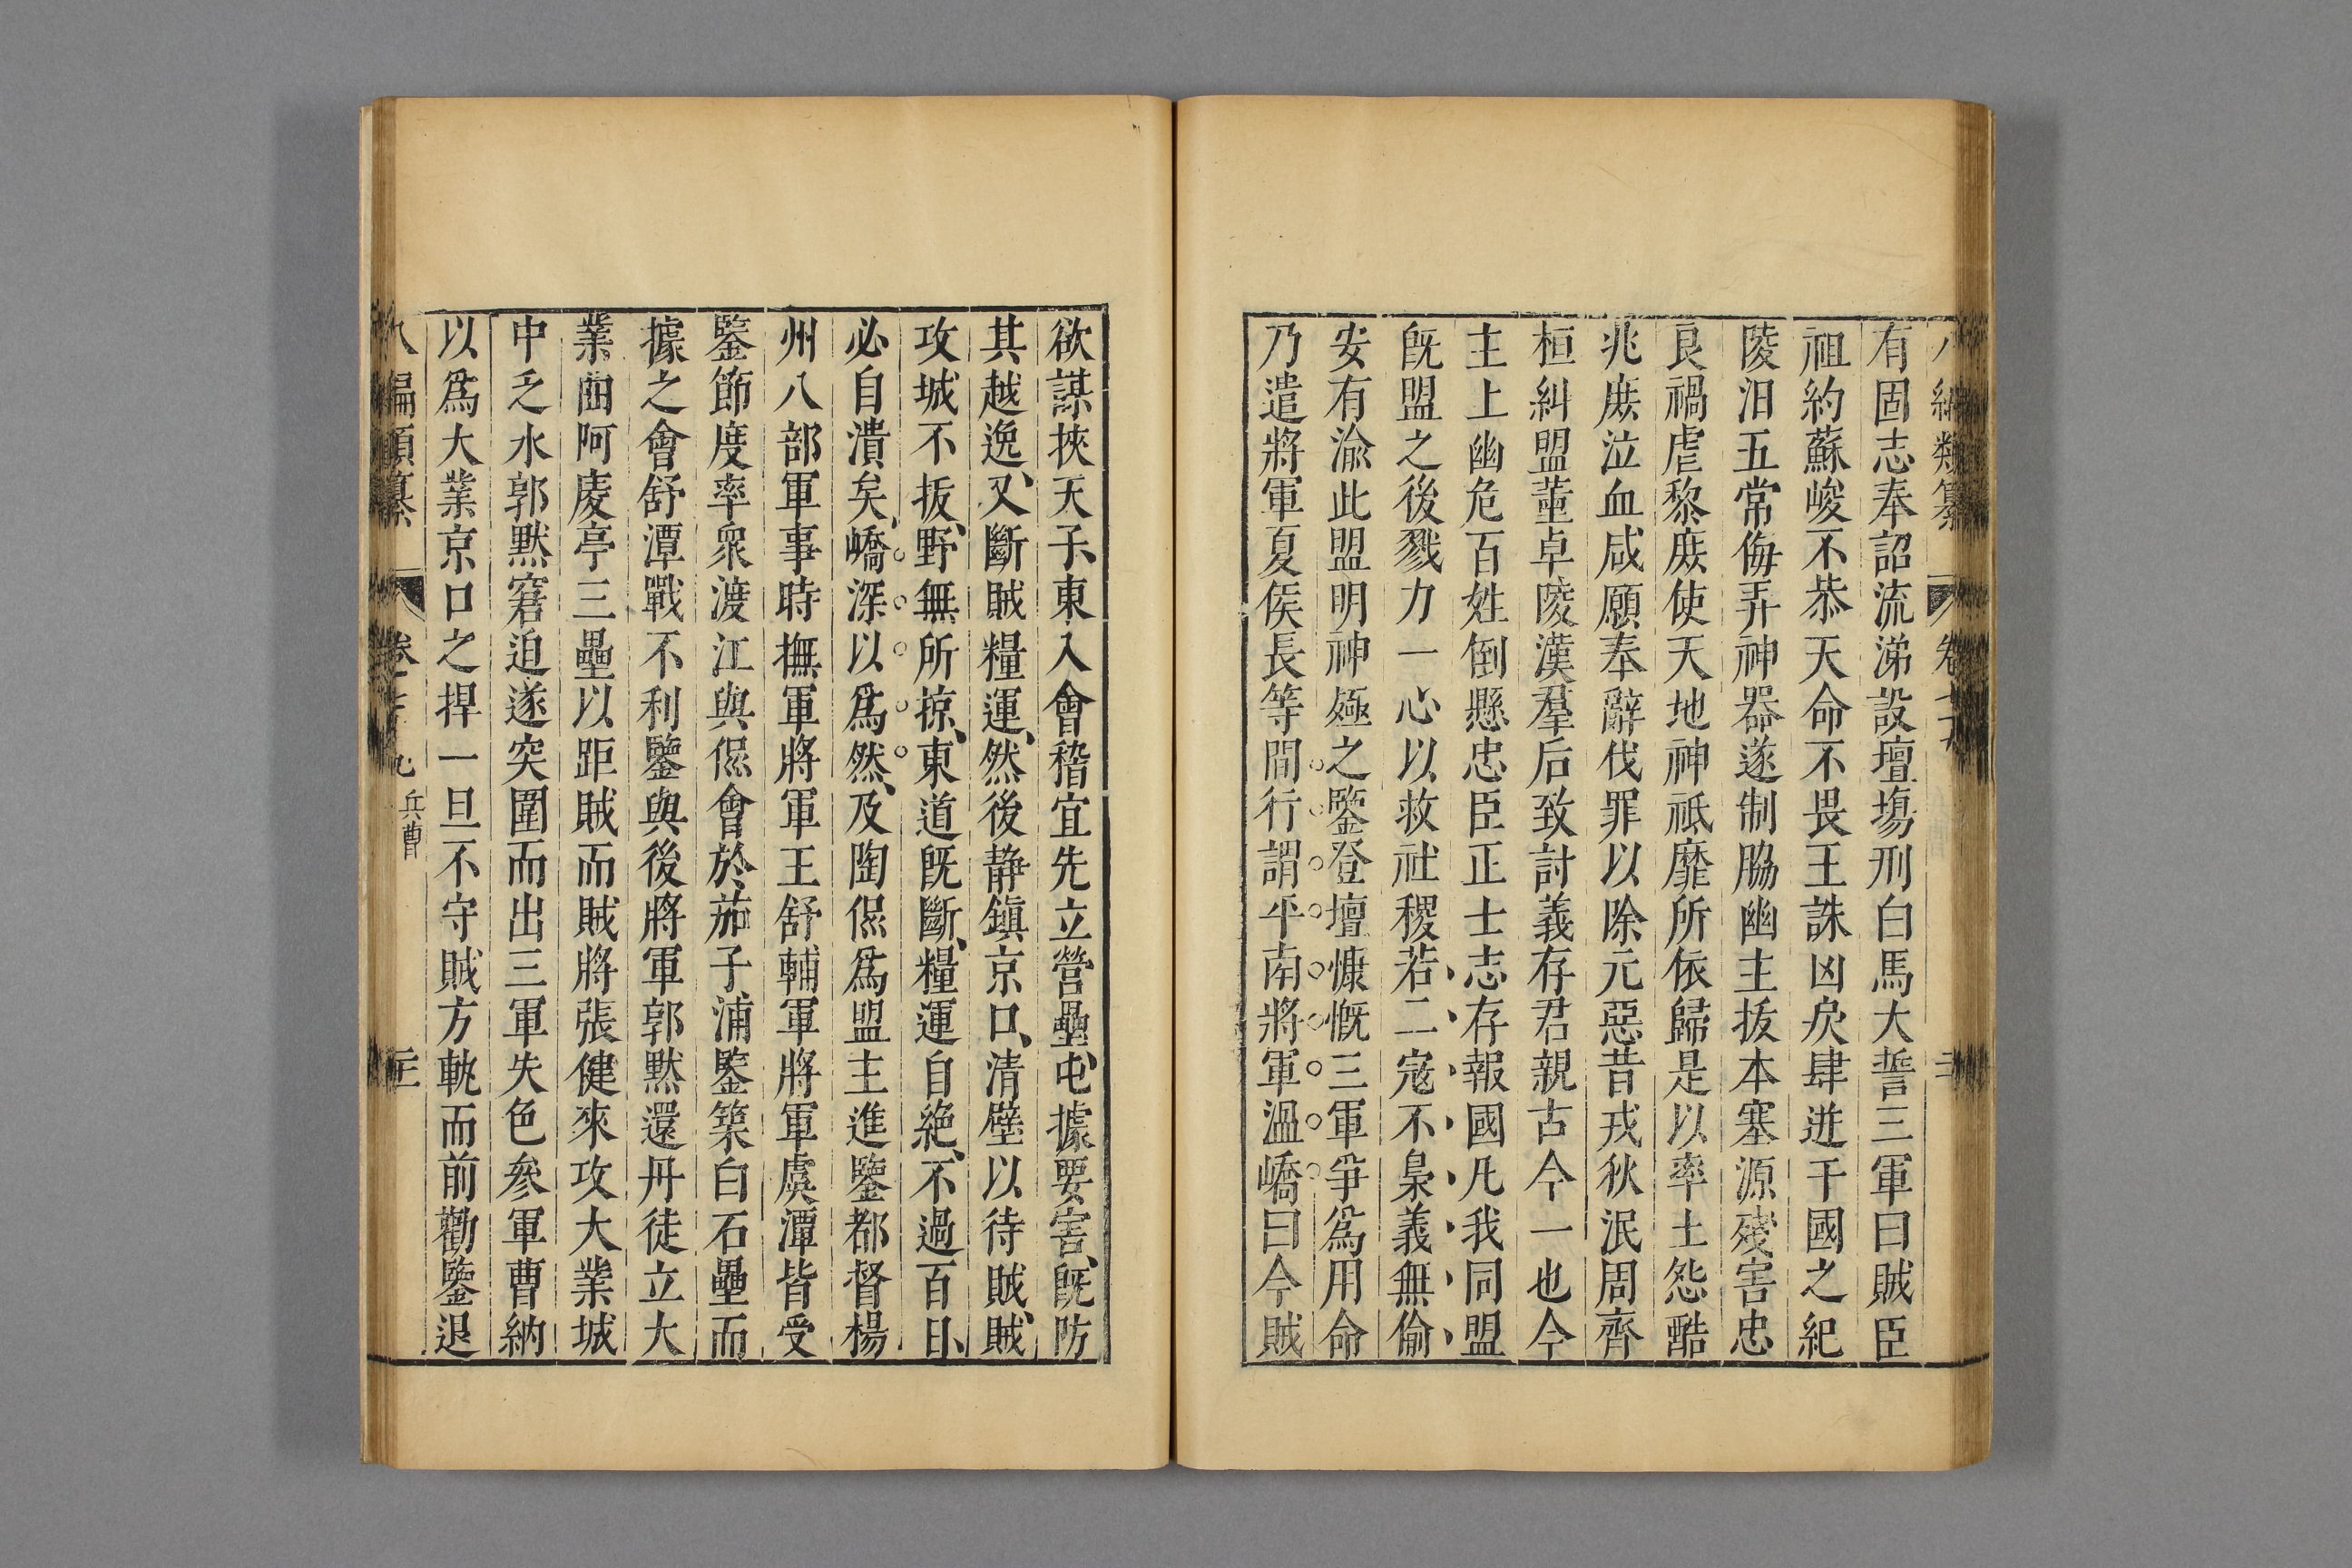 有固志奉詔流涕設壇塲刑白馬大誓三軍曰賊臣
祖約蘇峻不恭天命不畏王誅凶戾肆逆干國之紀
陵汨五常侮弄神器遂制脇幽主拔本塞源殘害忠
良禍虐黎庶使天地神祇靡所依歸是以率土怨酷
兆庶泣血咸願奉辭伐罪以除元惡昔戎狄泯周齊
桓糾盟董卓陵漢羣后致討義存君親古今一也今
主上幽危百姓倒懸忠臣正士志存報國凡我同盟
旣盟之後戮力一心以救社稷若二寇不梟義無偷
安有渝此盟明神殛之鑒登壇慷慨三軍爭爲用命
乃遣將軍夏侯長等間行謂平南將軍溫嶠曰今賊
欲謀挾天子、東入會稽宜先立營壘、屯據要害、旣防
其越逸、又斷賊糧運、然後靜鎮京口、清壁以待賊、賊
攻城、不拔、野無所掠、東道旣斷、糧運自絶、不過百日、
必自潰矣、嶠深以爲然、及陶侃爲盟主進鑒都督楊
州八部軍事時撫軍將軍王舒輔軍將軍虞潭皆受
鑒節度率衆渡江與侃會於茄子浦鑒築白石壘而
據之會舒潭戰不利鑒與後將軍郭黙還丹徒立大
業曲阿庱亭三壘以距賊而賊將張健來攻大業城
中乏水郭黙窘迫遂突圍而出三軍失色參軍曹納
以爲大業京口之捍一旦不守賊方軌而前勸鑒退
八編類纂 卷之 兵曹